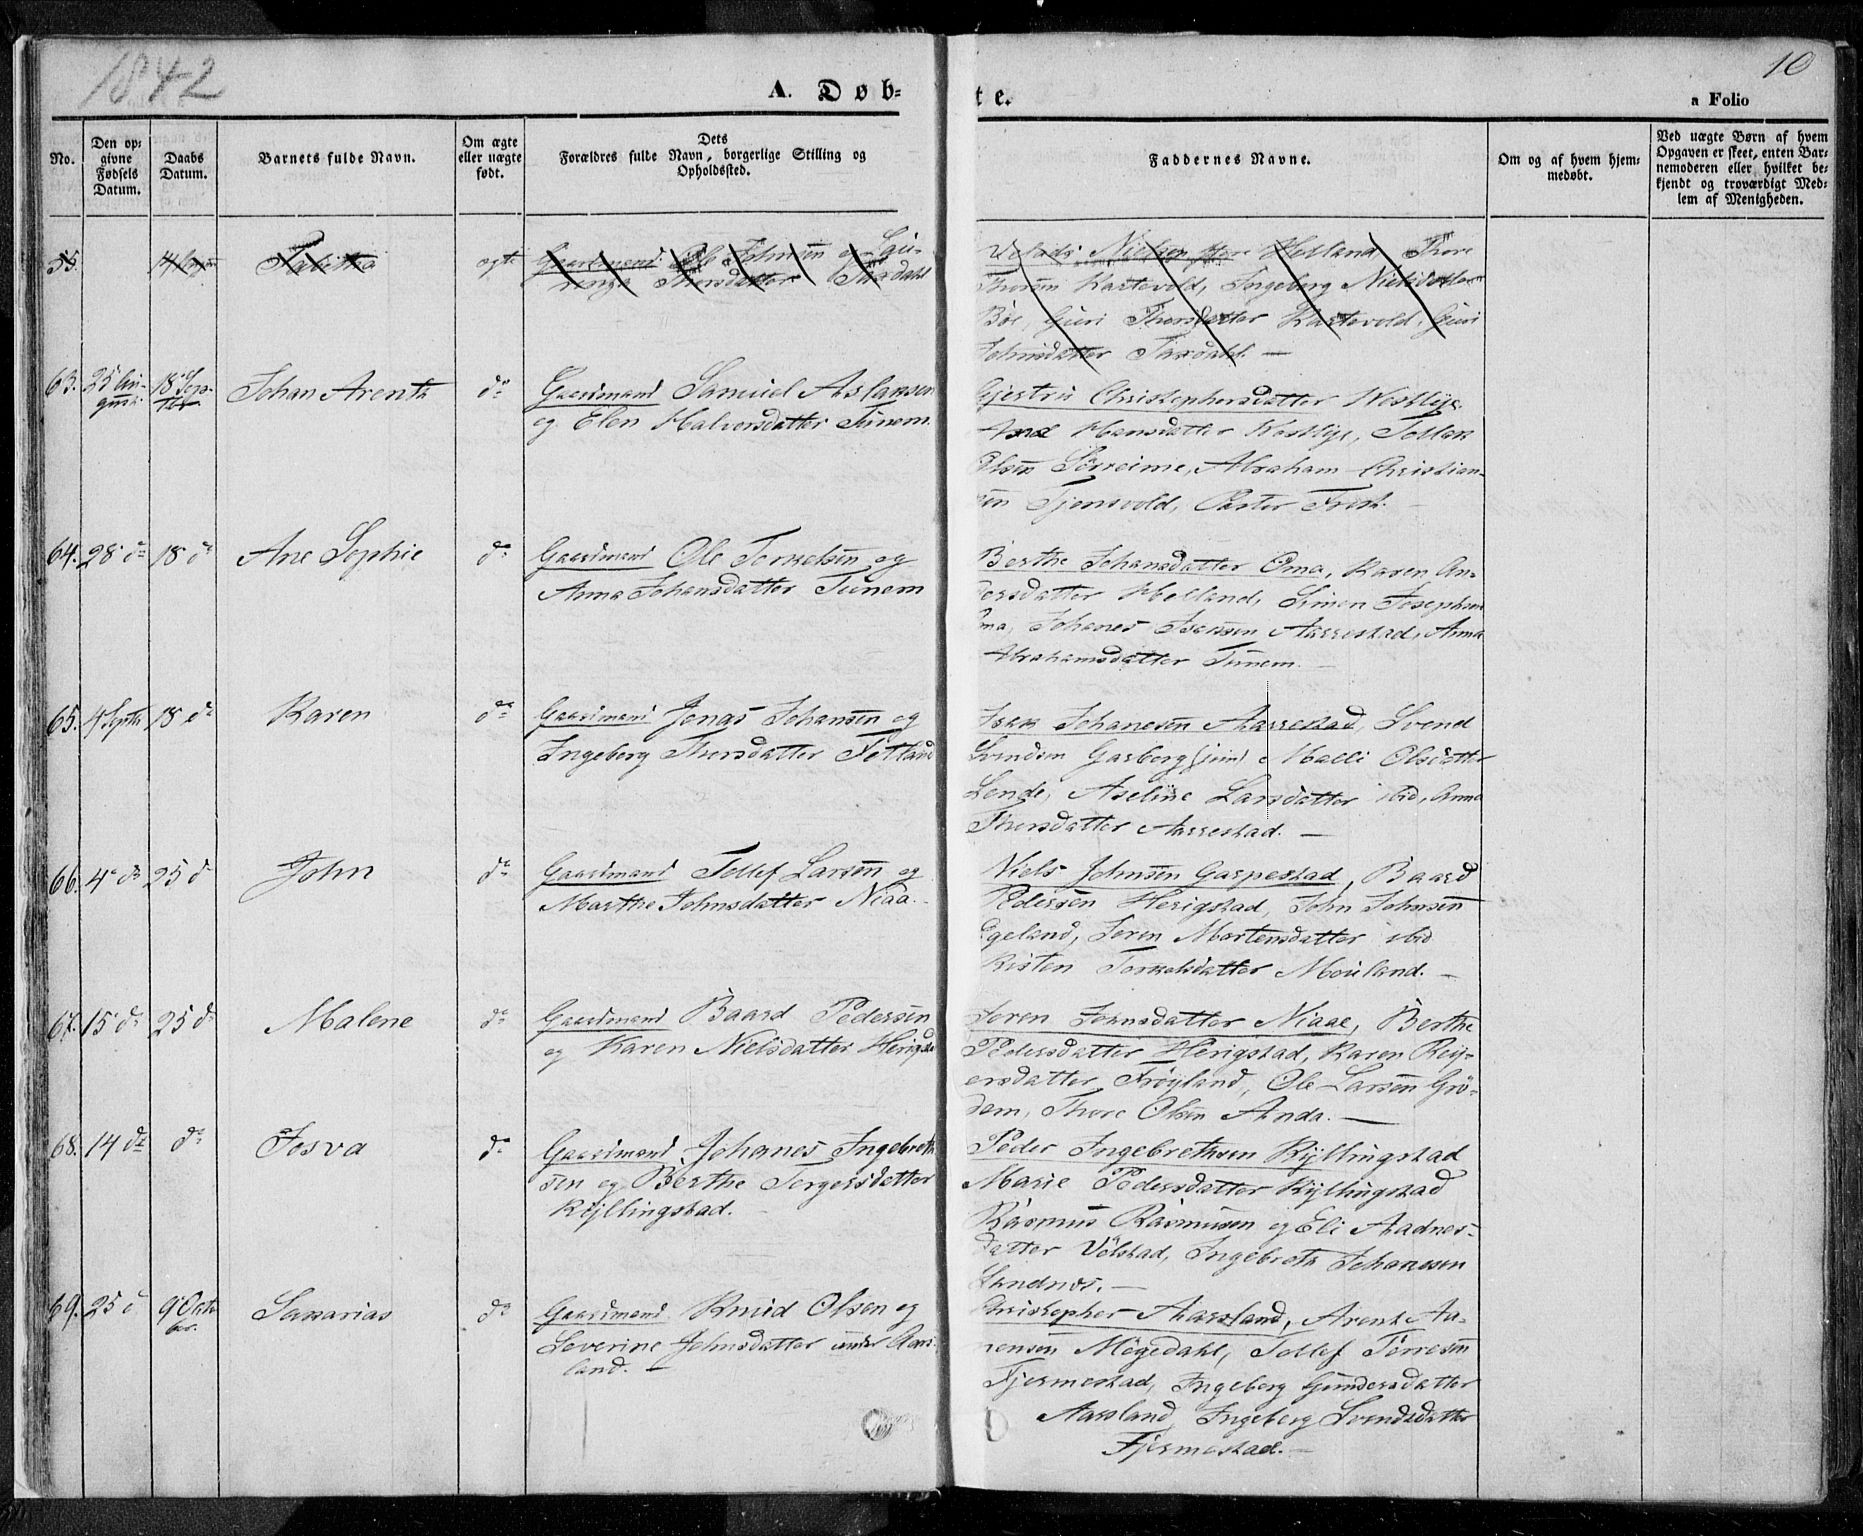 1842
10
A. Døb-
te.
a Folio
No.
Den op-
givne
Fødsels
Datum.
Daabs
Datum.
Barnets fulde Navn.
Om ægte
eller uægte
født.
Dets
Forældres fulde Navn, borgerlige Stilling og
Opholdssted.
Faddernes Navne.
Om og af hvem hjem-
medøbt.
Ved uægte Børn af hvem
Opgaven er skeet, enten Bar-
nemoderen eller hvilket be-
kjendt og troværdigt Med-
lem af Menigheden.
55.
Tabitha
ægte
Gaardmand Ole Johnsen og
Thorsdatter Taxdahl
Nielsen Helland, Thore
Thorsen Kartevold, Ingeborg Nielsdatter
Böe, Guri Thorsdatter Kartevold, Guri
Johnsdatter Taxdahl. —
63. 25 Au-
gust.
18 Sep-
tbr.
Johan Arentz
do
Gaardmand Samuel Aslaksen
og Elen Halvorsdatter Tunem.
Gjertru Christophersdatter Nostlye
Ane Hansdatter Nostlye, Tollak
Olsen Sörreime, Abraham Christian-
sen Tjensvold, Pastor Frost.
64. 28 do 18 do
Ane Sophie
do
Gaardmand Ole Torkelsen og
Anna Johansdatter Tunem
Berthe Johansdatter Oma, Karen An-
dersdatter Helland, Simen Josephsen
Oma, Johanes Isaksen Aarrestad, Anna
Abrahamsdatter Tunem. —
65. 4 Septbr 18 do
Karen
do
Gaardmand Jonas Johansen og
Ingeborg Thorsdatter Fotland
Isak Johanesen Aarrestad, Svend
Svendsen Garborg (jun) Malli Olsdatter
Lende, Aseline Larsdatter ibid, Anna
Thorsdatter Aarrestad. —
66. 4 do 25 do
John
do
Gaardmand Tollef Larsen og
Marthe Johnsdatter Niaa.
Niels Johnsen Gaspestad, Baard
Pedersen Herigstad, John Johnsen
Egeland, Soren Mortensdatter ibid
Kisten Torkelsdatter Mouland. —
67. 15 do 25 do
Malene
do
Gaardmand Baard Pedersen
og Karen Nielsdatter Herigstad
Soren Johnsdatter Niaae, Berthe
Pedersdatter Herigstad, Karen Reij-
ersdatter Fröyland, Ole Larsen Grö-
dem, Thore Olsen Anda. —
68. 14 do do
Josva
do
Gaardmand Johanes Ingebreth-
sen og Berthe Torgersdatter
Kyllingstad.
Peder Ingebrethsen Kyllingstad
Marie Pedersdatter Kyllingstad
Rasmus Rasmusen og Eli Aadnes-
datter Völstad, Ingebreth Johanesen
Sandnes. —
69. 25 do 9 Octo-
ber.
Sakarias
do
Gaardmand Knud Olsen og
Severine Johnsdatter under Aars-
land. —
Christopher Aarsland, Arent Aa-
nensen Mögedahl, Tollef Torresen
Fjermestad, Ingeborg Gundersdatter
Aarsland, Ingeborg Svendsdatter
Fjermestad. —